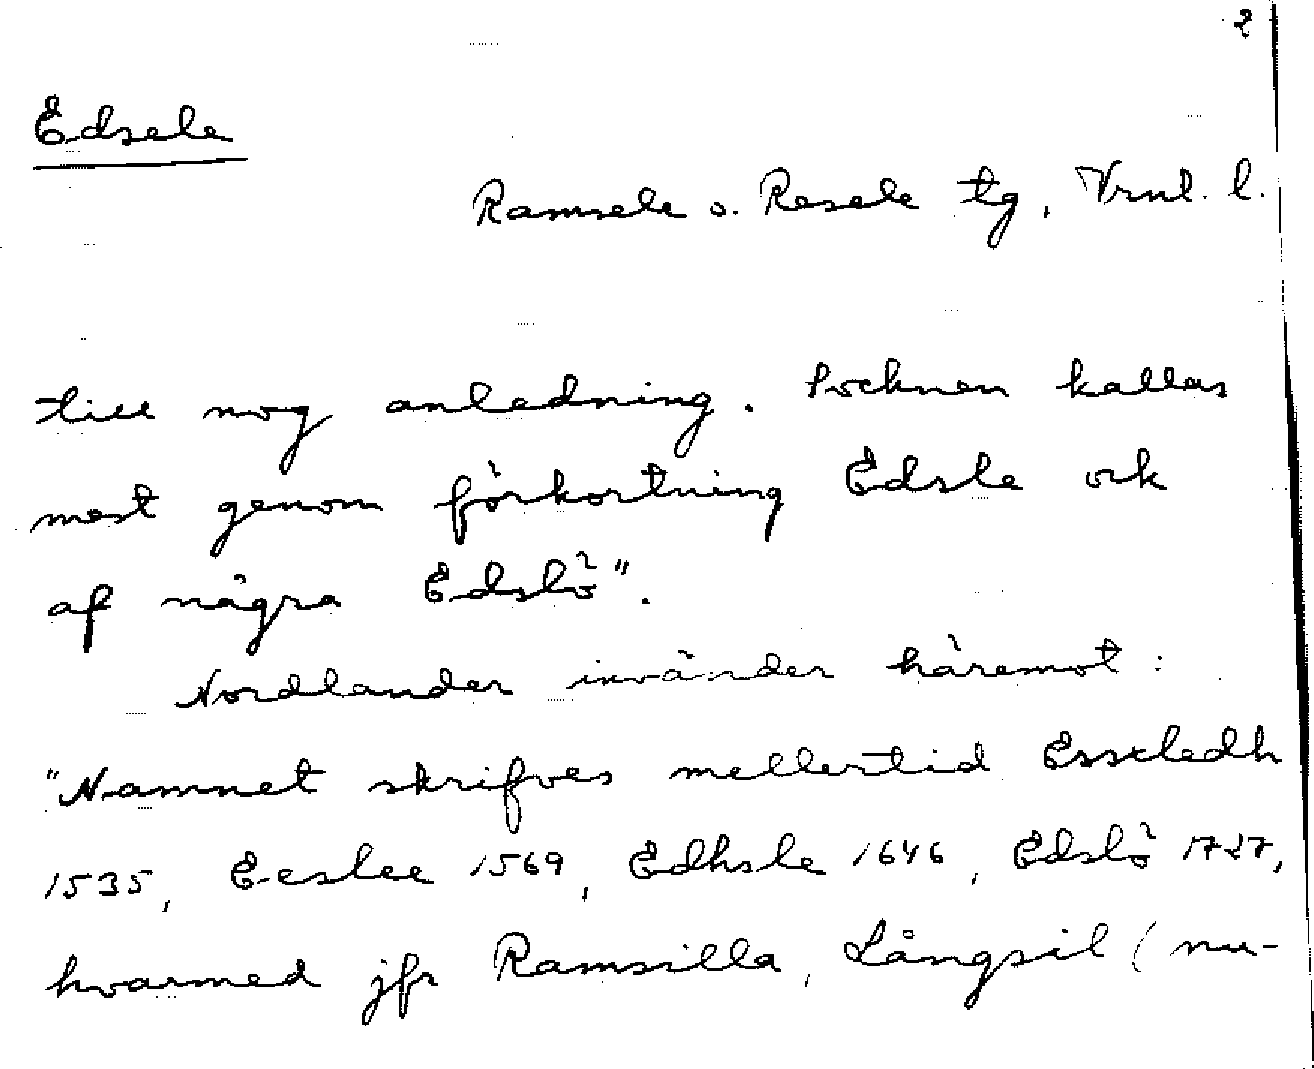 2
Edsele
Ramsele o. Resele tg, Vrnl. l.
till nog anledning. Socknen kallas
mest genom förkortning Edsle ock
af några Edslö".
Nordlander invänder häremot:
"Namnet skrifves mellertid Esseledh
1535, Eeslee 1569, Edhsle 1646, Edslö 1727,
hvarmed jfr Ramsilla, Långsil (nu-